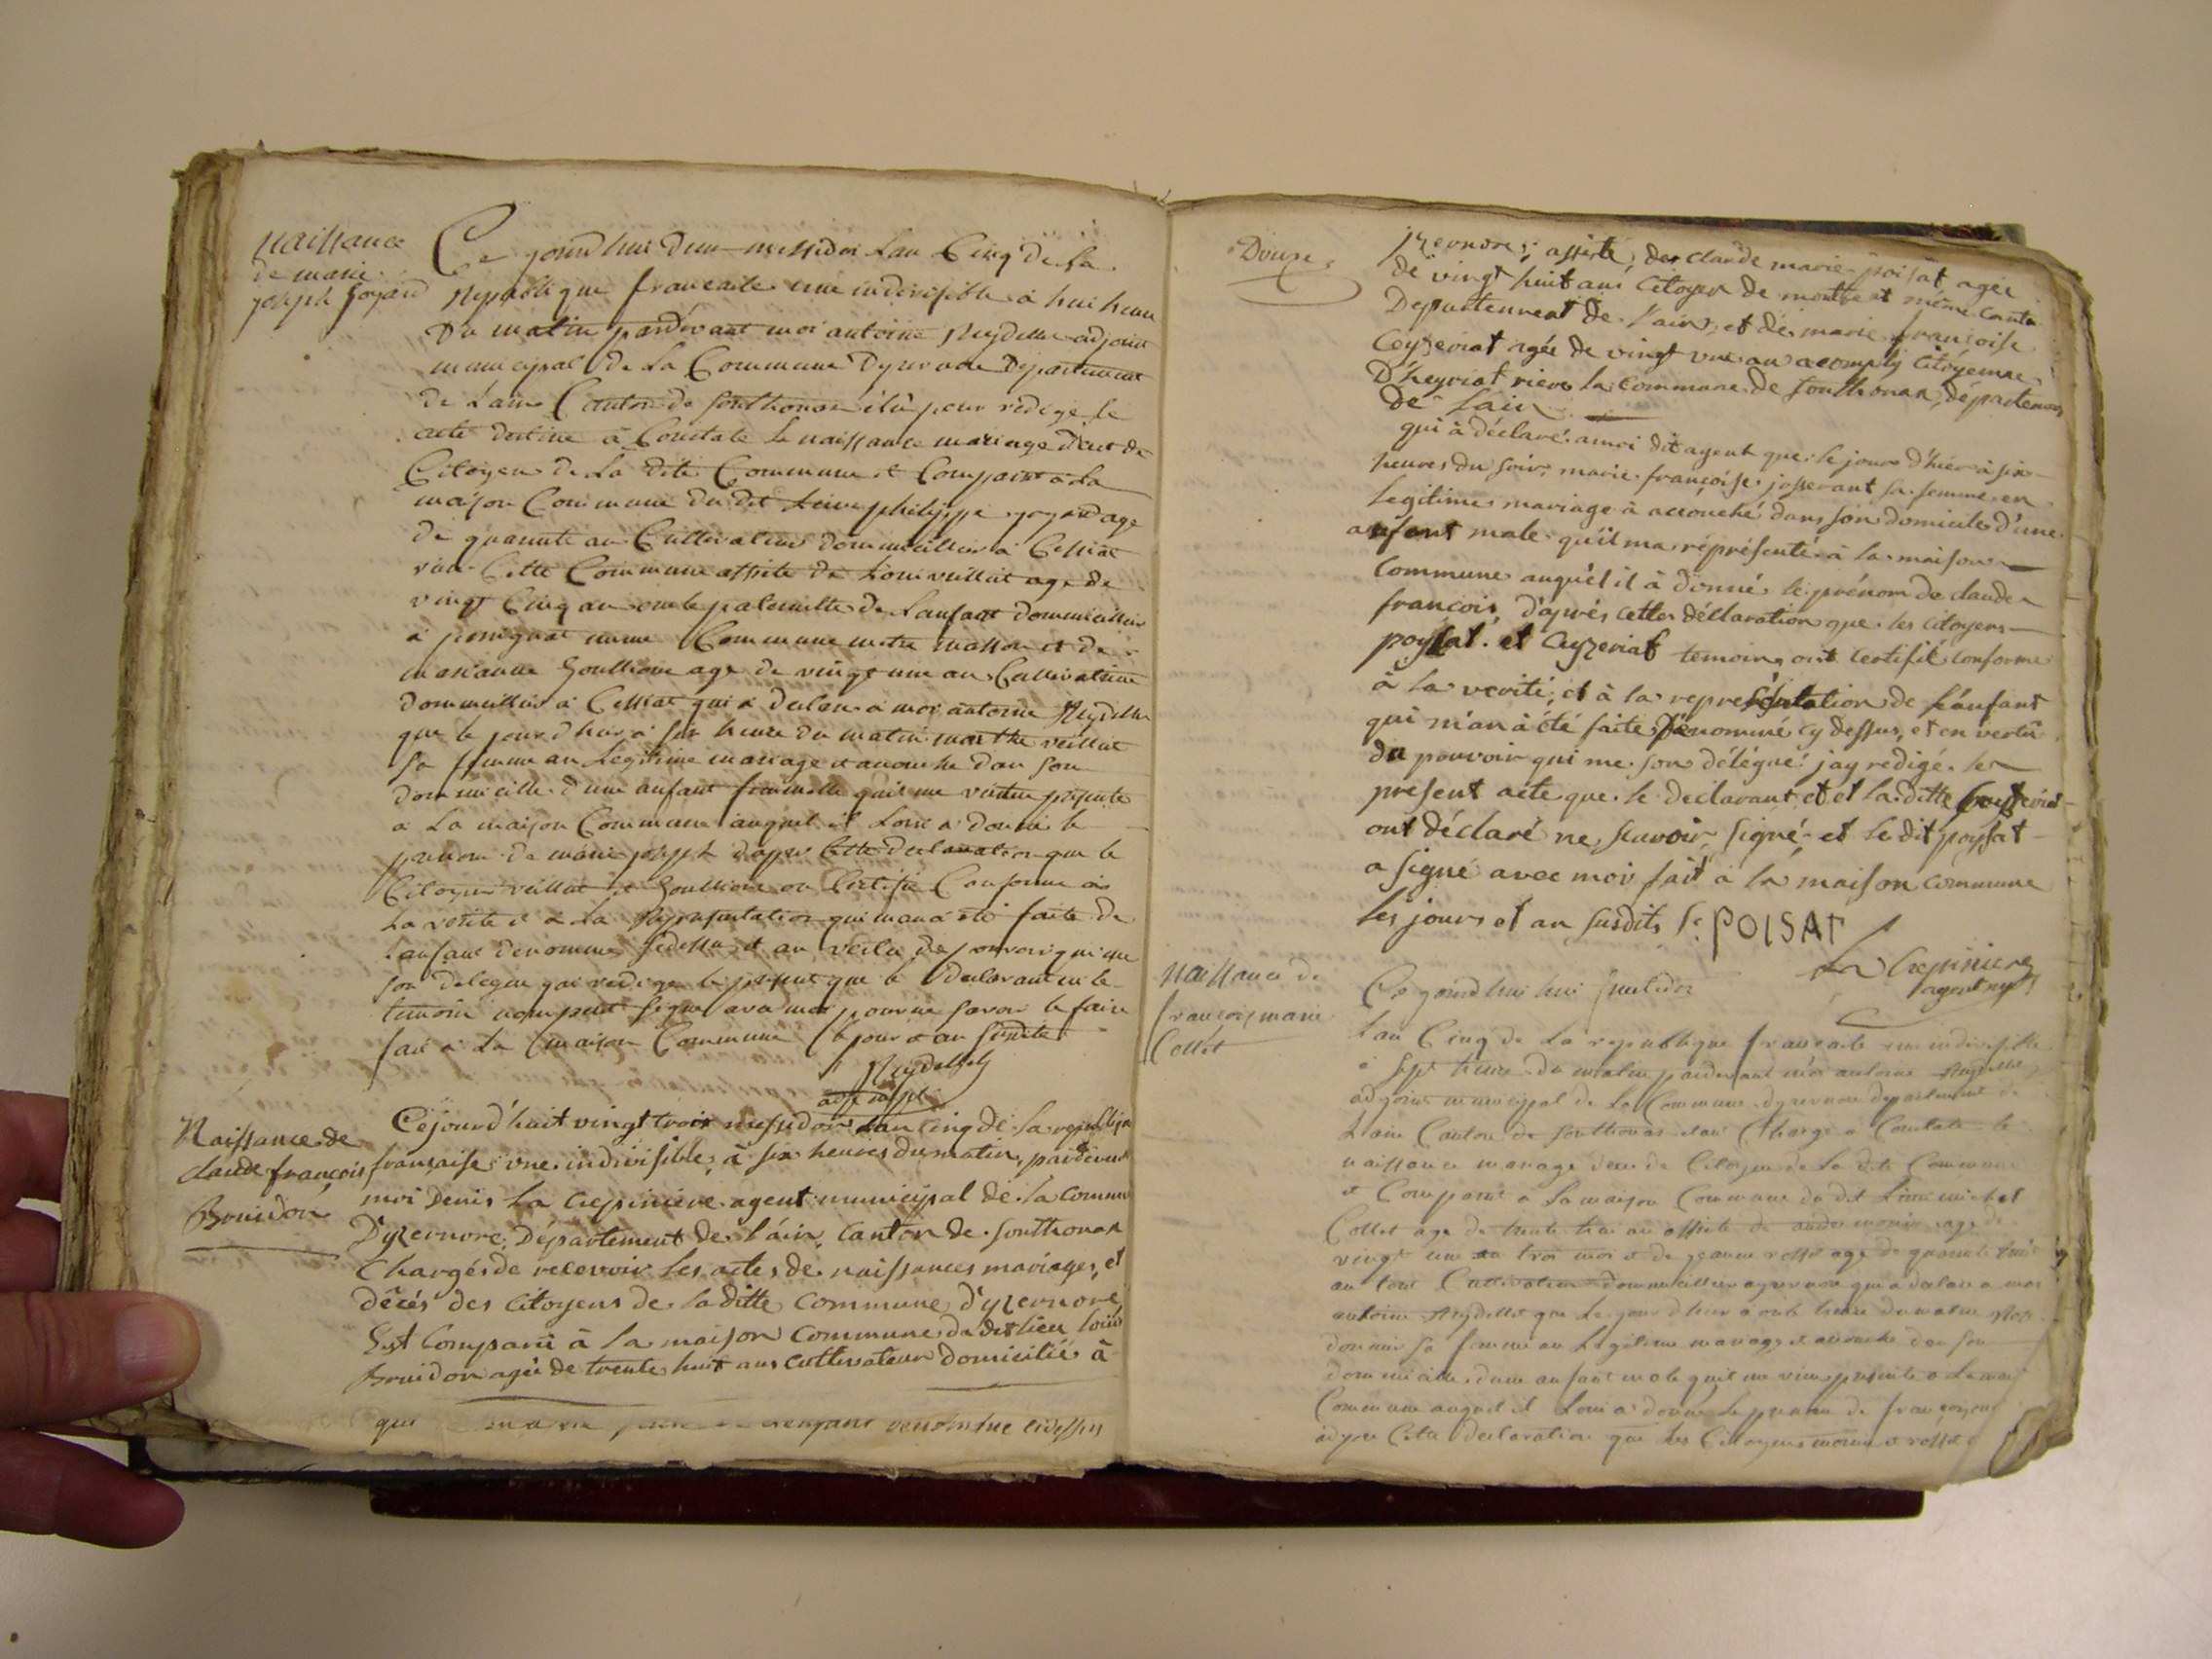 Naissance
de marie
joseph goyard
Ce jourdhui deux messidor Lan Cinq de la
Republique francaite une indivisible a huit heure
Du matin pardevant moi antoine Reydellet adjoint
municipal de La Commune Dyzernore Departement
de Lain Canton de Sonthonax élû pour redige le
acte destine à Constate le naissance mariage deces de
Citoyen de La dite Commune et Comparu à La
maison Commune du dit Lieu philippe goyard age
de quarante an Cultivateur dommicillier à Cessiat
rier Cette Commune assiste de Louis veillat age de
vingt Cinq an oncle paternelle de Lanfant dommicillier
a perignat meme Commune metre masson et de
marianne goullion age de vingt une an Cultivatrice
dommicillier à Cessiat qui a declare a moi antoine Reydellet
que le jour dhier à six heure du matin marthe veillat
sa femme an Legitime mariage et acouche dan son
dommicille dune anfant femmelle quil me vientn presente
a La maison Commune auquel il Lon a donne le
prenom de marie joseph dapre Cette declaration que le
Citoyen veillat et goullion on Certifie Conforme a
La verite et a La Representation qui man a été faite de
Lanfant denomme sidessu et an vertu de pouvoir qui me
son delegue jai redige le present que le declarant ni le
temoin nompoint signe avec moi pour ne savoir le faire
fait a La maison Commune le jour et an susdite
Reydellet
adj mpl
Naissance de
claude françois
Bruidon
Cejourd'huit vingt trois messidor Lan cinq de la republique
française une indivisible, à six heures du matin, pardevant
moi Denis La Crepiniere agent municipal de la Commune
D'yzernore, Département de l'ain, Canton de Sonthonax
Chargés de recevoir les actes de naissances mariages, et
décés des Citoyens de la ditte Commune, D'yzernore,
Est Comparu à la maison Commune du dit lieu louis
Bruidon agée de trente huit ans cultivateur domicilié à
qui man a lenfant denomme cidessus
Douze
yzernore; assisté, de claude marie poisat agée
de vingt huit ans Citoyen de même Canton
Departement de l'ain, et de marie françoise
Ceyzeriat agée de vingt une an acomply Citoyenne
D'heyriat riere la commune de Sonthonax, département
De Lain
qui à déclaré amoi dit agent que le jour d'hier à six
heures du soir, marie françoise josserant sa femme en
Legitime mariage à accouché dans son domicile d'une
anfant male qu'il ma réprésenté à la maison
Commune auquel il à donné le prénom de claude
françois, d'aprés cette déclaration que les Citoyens
poysat et Ceyzeriat temoins ont certifié conforme
à la verité, et à la representation de l'anfant
qui m'an à été faite Dénommé cy dessus, et en vertû
du pouvoir qui me son délégué jay redigé le
present acte que le declarant et et la ditte Ceyzeriat
ont déclaré ne sçavoir signé et le dit poysat
a signé avec moi fait à la maison commune
les jours et an susdits Sr. POISAT
La Crepiniere
agent mpl
Naissance de
francoismarie
Collet
Ce jourdhui huit
Lan Cinq de La republique francaite une indivisible
a sept heure du matin pardevant moi antoine Reydellet
adjoint municipal de La Commune dyzernore departement de
Lain Canton de Sonthonax elue Charge a Constate le
naissance mariage deces de Citoyen de La dite Commune
et Comparu a La maison Commune du dit Lieu michel
Collet age de trente an assiste de age de
vingt une an troi moi et de jeanne rosset age de quarante huit
an tous Cultivateur dommicillier a yzernore qui a declare a moi
antoine Reydellet que Le jour dhier a onze heure du matin
sa femme an Legitime mariage et acouche dan son
dommicille dune anfant male quil me vien presente a La maison
Commune auquel il Lon a donne Le prenom de francois
dapre Cette declaration que les Citoyens et rosset